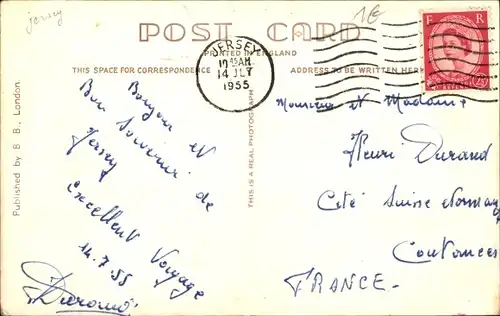 jersey
1€
POST CARD
PRINTED IN ENGLAND
THIS SPACE FOR CORRESPONDENCE
ADDRESS TO BE WRITTEN HERE
JERSEY
10 45AM
14 JLY
1955
E R
Published by B B., London
THIS IS A REAL PHOTOGRAPH
Bonjour et
Bon Souvenir de
Jersey
Excellent Voyage
14.7.55
Durand
Monsieur et Madame
Henri Durand
Cité Suisse
Coutances
FRANCE.